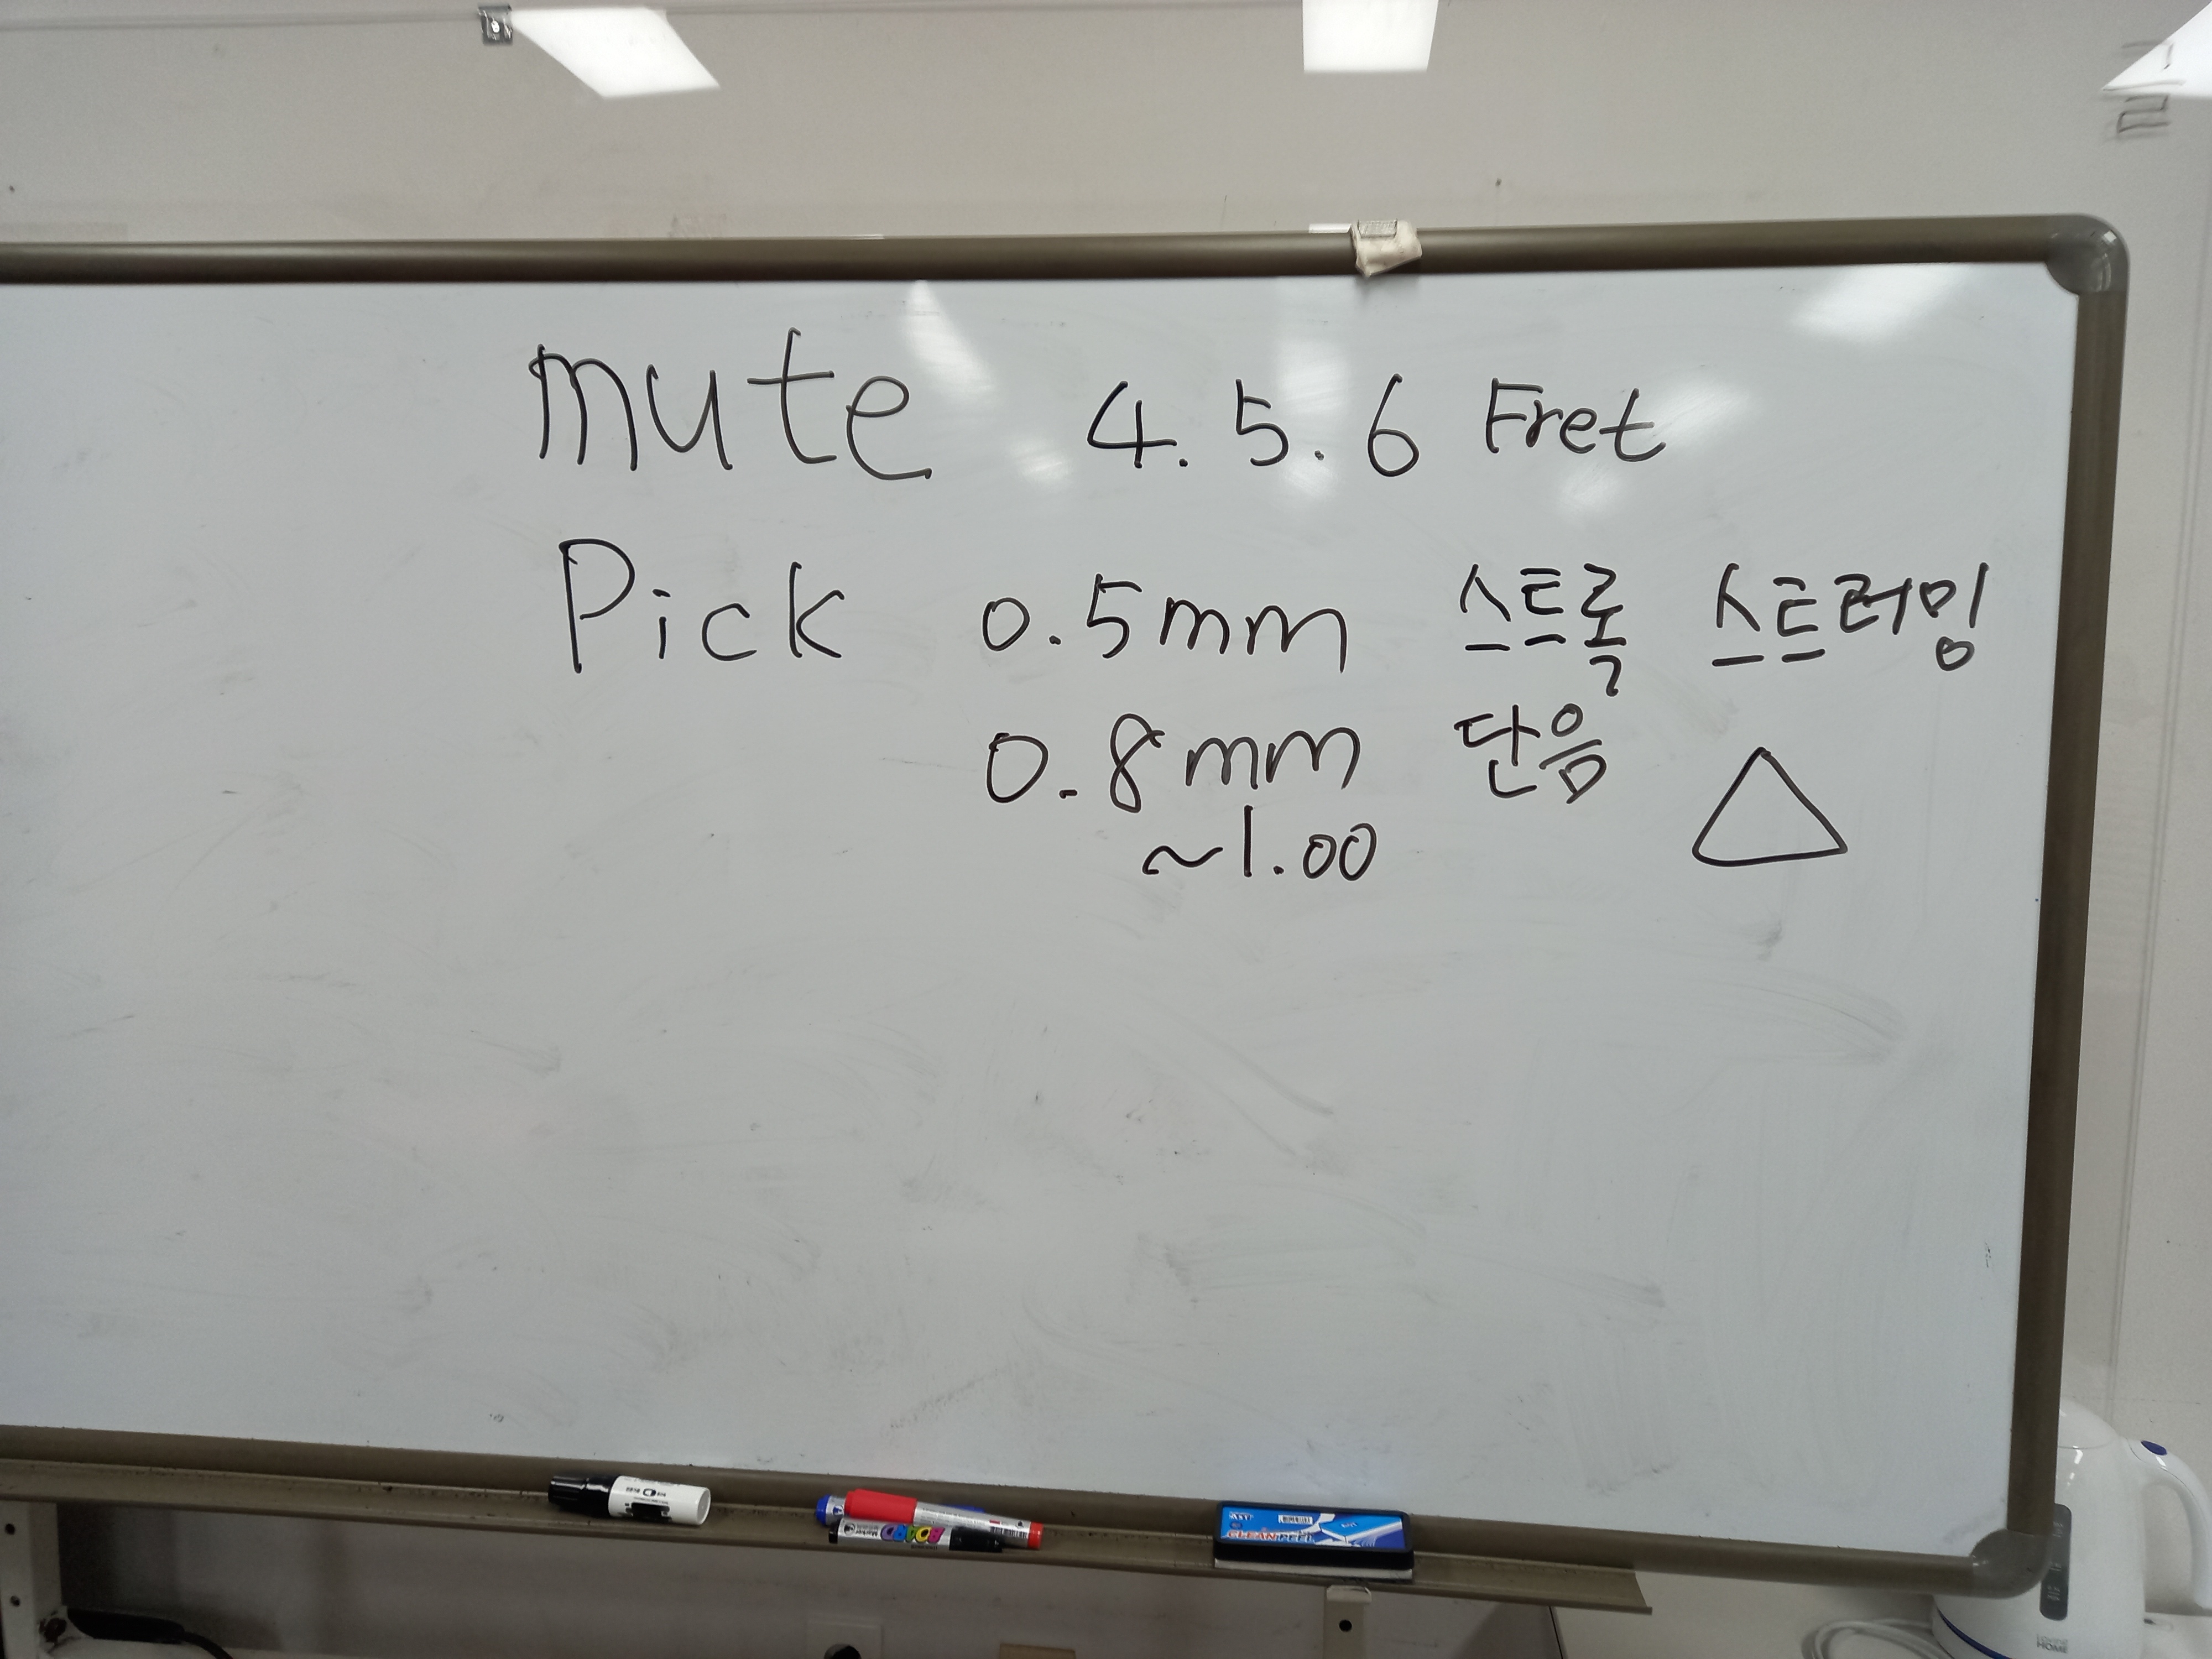 mute 4. 5. 6 Fret
Pick 0.5mm 스트록 스트러밍
0.8mm 단음
~1.00
BOARD Marker
CLEAN
HOME